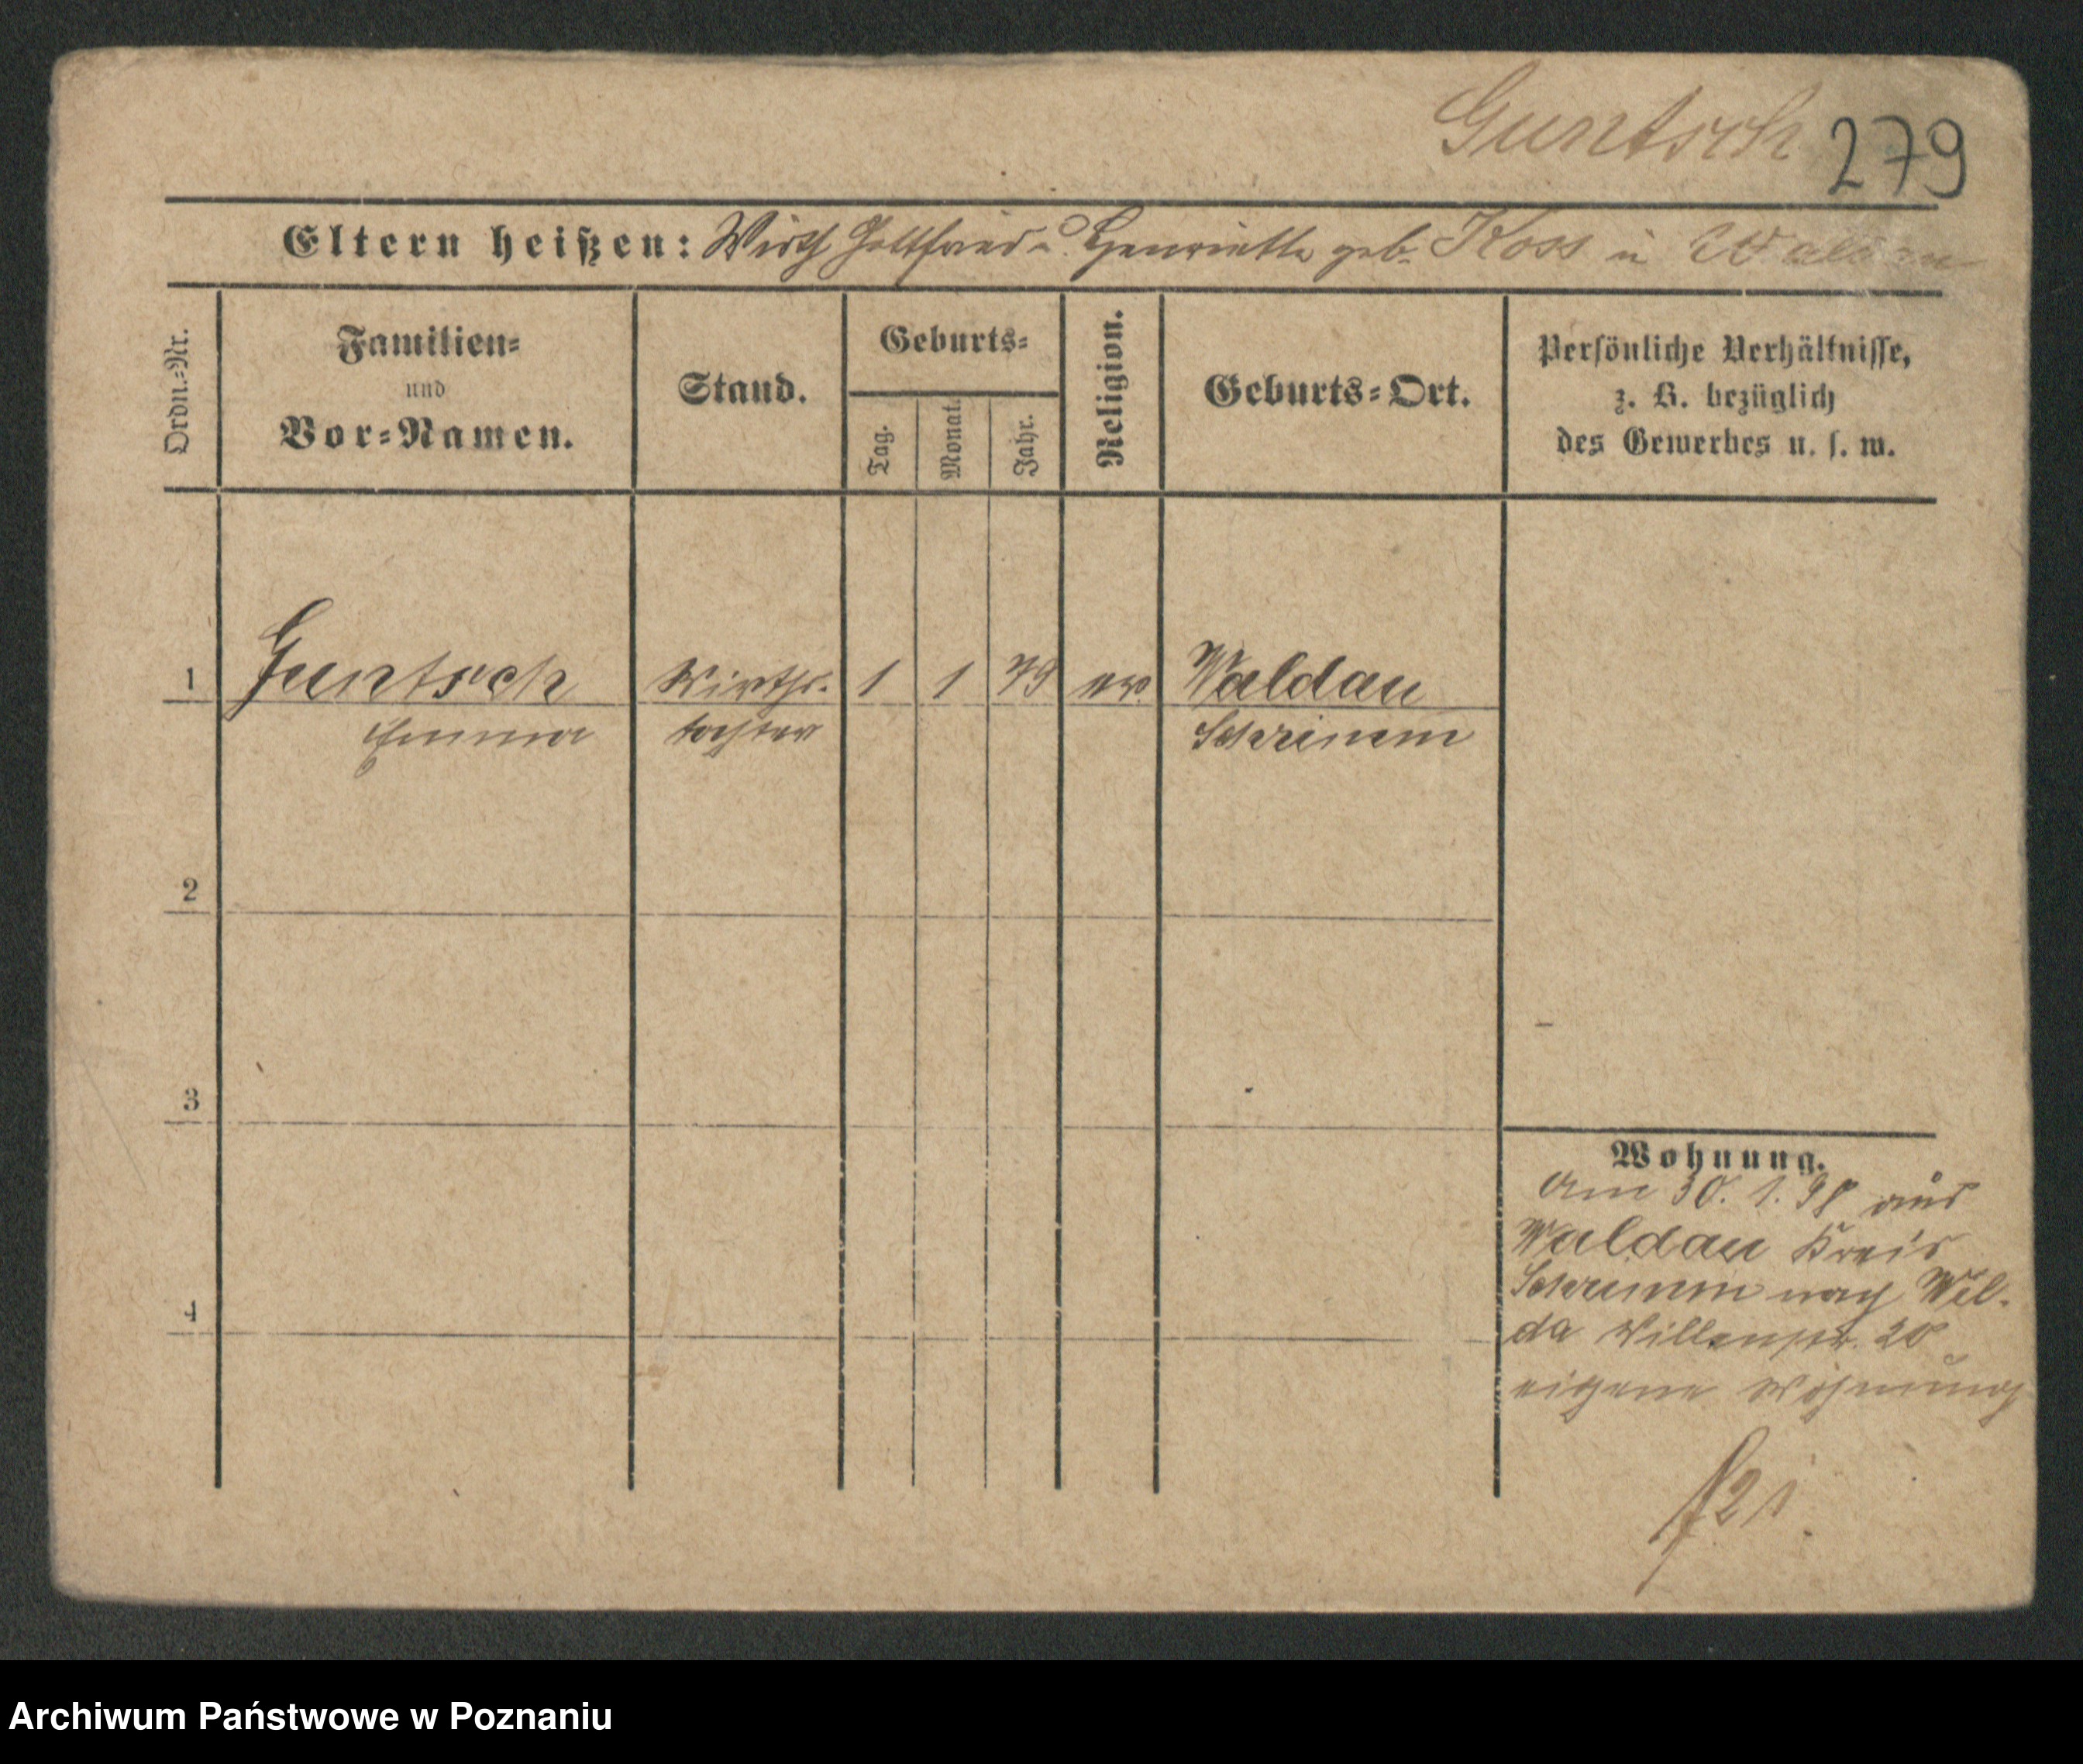 Guntsch 279
Eltern heißen: Wirth Gottfried u. Henriette geb. Koss in Waldau
Ordn.-Nr.
Familien-
und
Vor-Namen.
Stand.
Geburts-
Tag.
Monat.
Jahr.
Religion.
Geburts-Ort.
Persönliche Verhältnisse,
z. B. bezüglich
des Gewerbes u. s. w.
1 Guntsch Wirths- 1 1 79 ev. Waldau
Emma tochter Schrimm
2
3
4
Wohnung.
Am 30. 1. 98 aus
Waldau Kreis
Schrimm nach Wil-
da Villenstr. 20
eigene Wohnung
Archiwum Państwowe w Poznaniu